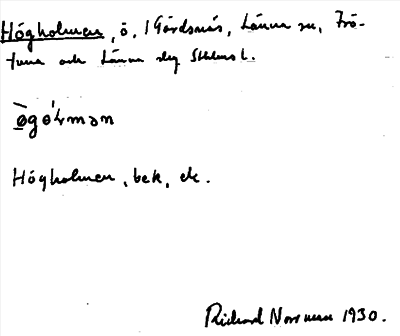 Högholmen, ö, i Gårdsnäs, Länna sn, Frö-
tuna och Länna skg Sthlms l.
ø̀gǿɫmən
Högholmen, bek, ek.
Rickard Norrman 1930.